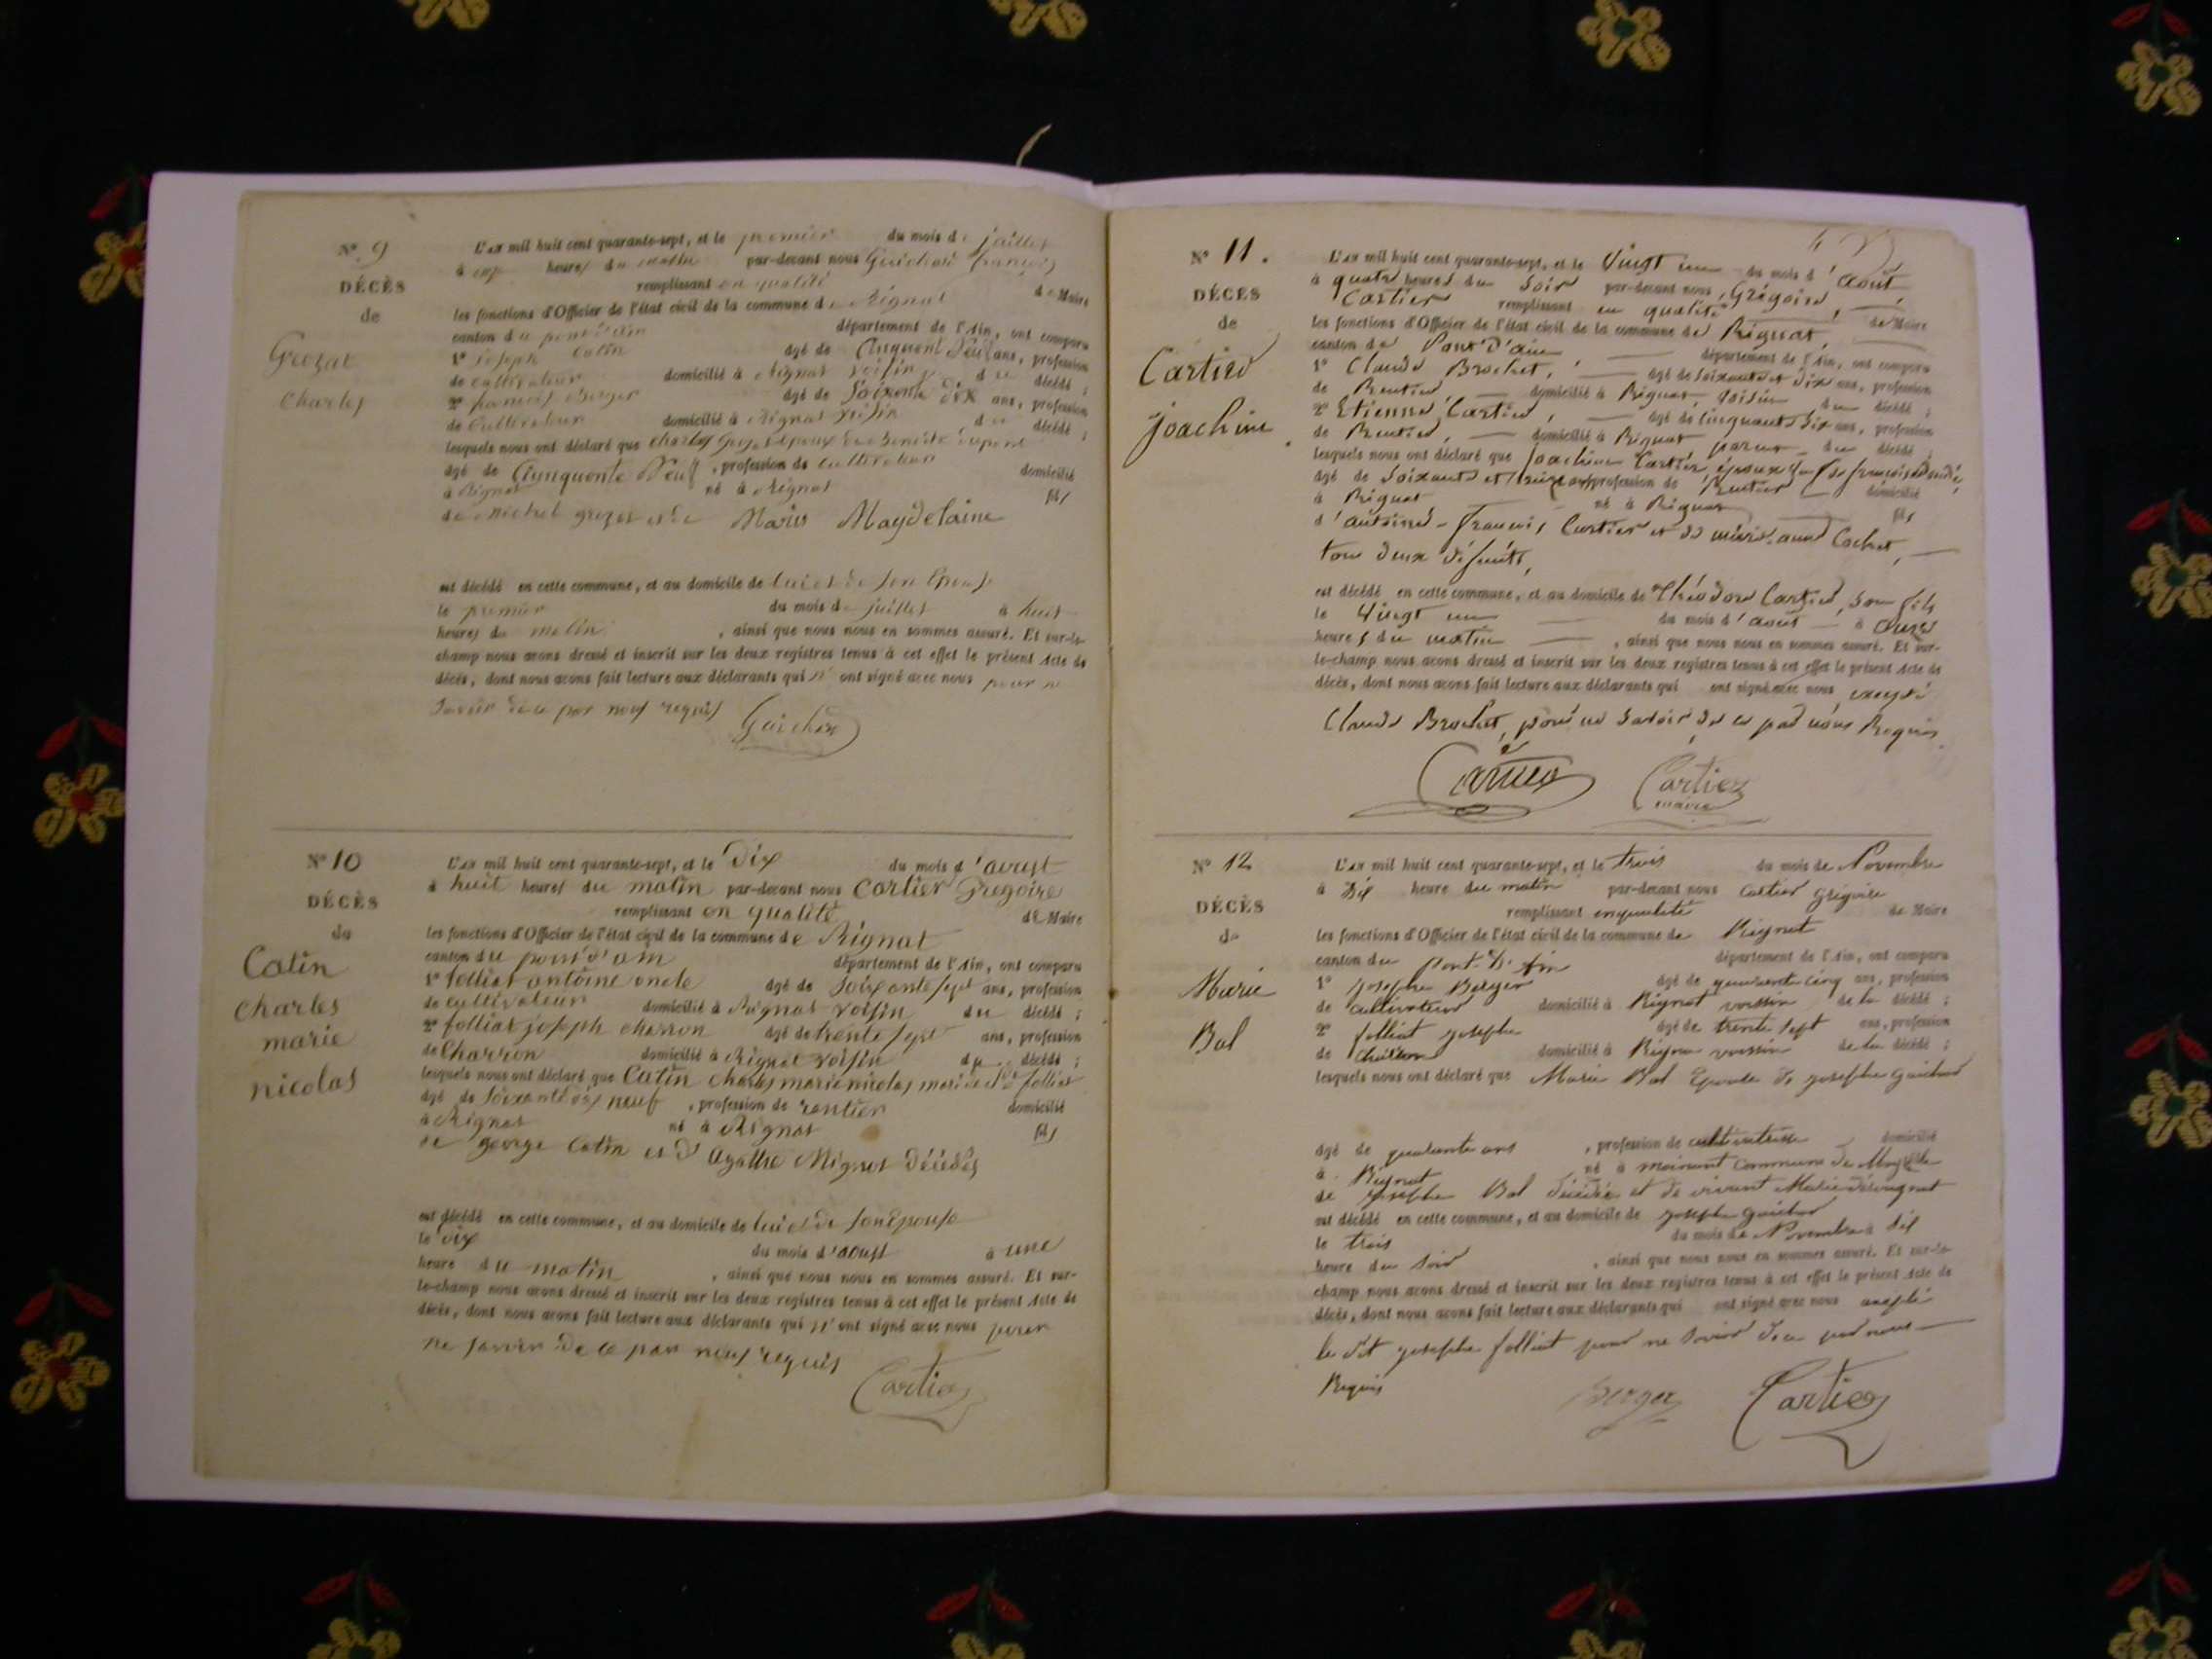 N° 9
DÉCÈS
de
Grozat
Charles
L'an mil huit cent quarante-sept, et le premier du mois de juillet
à heures du matin par-devant nous Guichard françois
remplissant en qualité de Maire
les fonctions d'Officier de l'état civil de la commune de Rignat
canton du pont d'ain département de l'Ain, ont comparu
1° joseph Catin âgé de Cinquent Neuf ans, profession
de Cultivateur domicilié à Rignat voisin du décédé ;
2° françois Berger âgé de Soixente dix ans, profession
de Cultivateur domicilié à Rignat voisin du décédé ;
lesquels nous ont déclaré que Charles Epoux
âgé de Cynquente Neuf , profession de Cultivateur domicilié
à Rignat né à Rignat fils
de Michel grozat et de Marie Magdelaine
est décédé en cette commune, et au domicile de lui et de son Epouse
le premier du mois de juillet à huit
heures du matin , ainsi que nous nous en sommes assuré. Et sur-le-
champ nous avons dressé et inscrit sur les deux registres tenus à cet effet le présent Acte de
décès, dont nous avons fait lecture aux déclarants qui n' ont signé avec nous pour ne
Savoir de ce par nous requis
Guichard
N° 10
DÉCÈS
de
Catin
Charles
marie
nicolas
L'an mil huit cent quarante-sept, et le Dix du mois d'aoust
à huit heures du matin par-devant nous Cartier Gregoire
remplissant en qualité de Maire
les fonctions d'Officier de l'état civil de la commune de Rignat
canton du pont d'ain département de l'Ain, ont comparu
1° folliat antoine oncle âgé de Soixante sept ans, profession
de cultivateur domicilié à Rignat voisin du décédé ;
2° folliat joseph charron âgé de trente sept ans, profession
de Charron domicilié à Rignat voisin du décédé ;
lesquels nous ont déclaré que Catin Charles marie nicolas mari de folliat
âgé de Soixante dix neuf , profession de rentier domicilié
à Rignat né à Rignat fils
de george Catin et d' Agathe Mignot Décédés
est décédé en cette commune, et au domicile de lui et de son Epouse
le dix du mois d'aoust à une
heure du matin , ainsi que nous nous en sommes assuré. Et sur-
le-champ nous avons dressé et inscrit sur les deux registres tenus à cet effet le présent Acte de
décès, dont nous avons fait lecture aux déclarants qui n' ont signé avec nous pour
ne savoir de ce par nous requis
Cartier
N° 11.
DÉCÈS
de
Cartier
joachim
L'an mil huit cent quarante-sept, et le Vingt un du mois d'août,
à quatre heures du Soir par-devant nous, Grégoire,
Cartier remplissant en qualité de Maire
les fonctions d'Officier de l'état civil de la commune de Rignat,
canton de Pont d'ain, département de l'Ain, ont comparu
1° Claude Brochet, âgé de soixante et dix ans, profession
de Rentier domicilié à Rignat, voisin du décédé ;
2° Etienne Cartier, âgé de cinquante six ans, profession
de Rentier, domicilié à Rignat parent du décédé ;
lesquels nous ont déclaré que Joachim Cartier, époux
âgé de Soixante et treize ans profession de Rentier domicilié
à Rignat né à Rignat fils
d'antoine-françois Cartier et de marie-anne Cochet,
tous deux défunts,
est décédé en cette commune, et au domicile de Théodore Cartier, son fils
le Vingt un du mois d'août à onze
heures du matin , ainsi que nous nous en sommes assuré. Et sur-
le-champ nous avons dressé et inscrit sur les deux registres tenus à cet effet le présent Acte de
décès, dont nous avons fait lecture aux déclarants qui ont signé avec nous, excepté
Claude Brochet, pour ne savoir de ce par nous Requis
Cartier Cartier
maire
N° 12
DÉCÈS
de
Marie
Bal
L'an mil huit cent quarante-sept, et le trois du mois de Novembre
à Dix heure du matin par-devant nous Cartier Grégoire
remplissant en qualité de Maire
les fonctions d'Officier de l'état civil de la commune de Rignat
canton du Pont-D'Ain département de l'Ain, ont comparu
1° Josephe Berger âgé de quarante cinq ans, profession
de cultivateur domicilié à Rignat voissin de la décédé ;
2° folliat josephe âgé de trente sept ans, profession
de charron domicilié à Rignat voissin de la décédé ;
lesquels nous ont déclaré que Marie Bal Epouse de josephe Guichard
âgé de quarante ans , profession de cultivatrisse domicilié
à Rignat né à commune de
de Josephe Bal décédé et de vivant Marie
est décédé en cette commune, et au domicile de josephe Guichard
le trois du mois de Novembre à dix
heure du soir , ainsi que nous nous en sommes assuré. Et sur-le-
champ nous avons dressé et inscrit sur les deux registres tenus à cet effet le présent Acte de
décès, dont nous avons fait lecture aux déclarants qui ont signé avec nous
le dit josephe folliat pour ne savoir de ce par nous
Requis
Berger Cartier